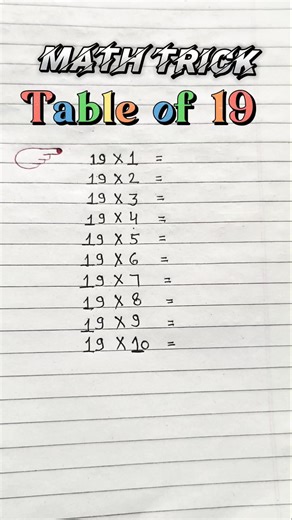 MATH TRICK
Table of 19
19 X 1 =
19 X 2 =
19 X 3 =
19 X 4 =
19 X 5 =
19 X 6 =
19 X 7 =
19 X 8 =
19 X 9 =
19 X 10 =